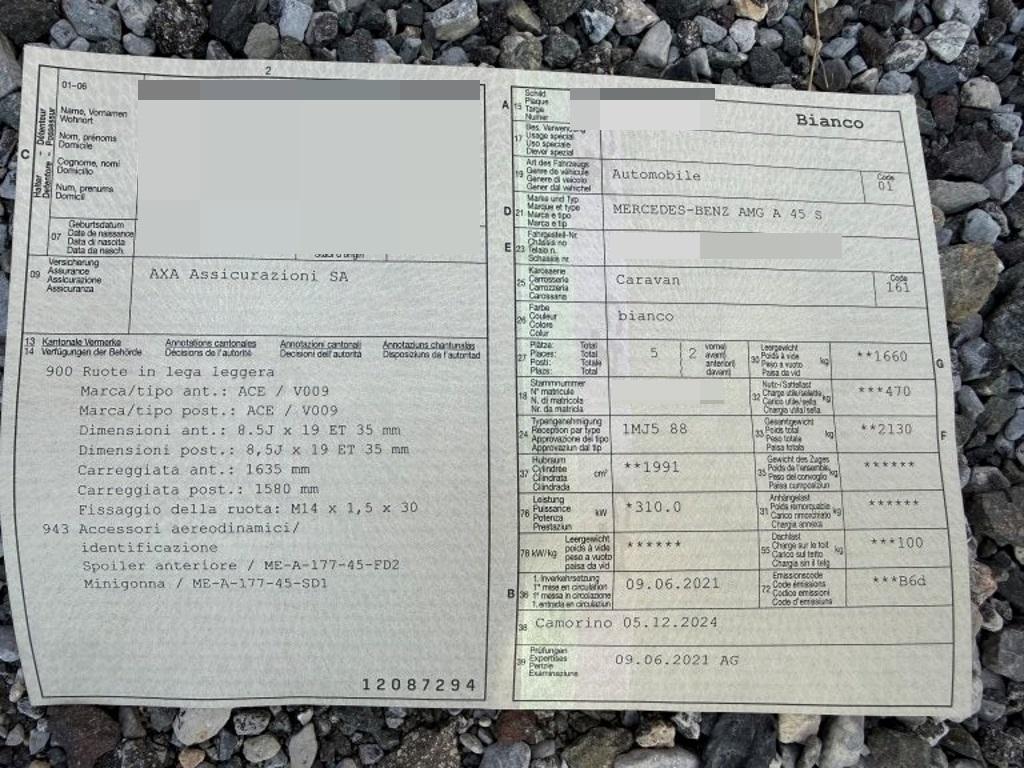 2
01-06
Halter - Détenteur
Detentore - Possessur
C
Name, Vornamen
Wohnort
Nom, prénoms
Domicile
Cognome, nomi
Domicilio
Num, prenums
Domicil
07
Geburtsdatum
Date de naissance
Data di nascita
Data da nasch.
09
Versicherung
Assurance
Assicurazione
Assicuranza
AXA Assicurazioni SA
13 Kantonale Vermerke Annotations cantonales Annotazioni cantonali Annotaziuns chantunalas
14 Verfügungen der Behörde Décisions de l'autorité Decisioni dell'autorità Disposiziuns da l'autoritad
900 Ruote in lega leggera
Marca/tipo ant.: ACE / V009
Marca/tipo post.: ACE / V009
Dimensioni ant.: 8.5J x 19 ET 35 mm
Dimensioni post.: 8,5J x 19 ET 35 mm
Carreggiata ant.: 1635 mm
Carreggiata post.: 1580 mm
Fissaggio della ruota: M14 x 1,5 x 30
943 Accessori aereodinamici/
identificazione
Spoiler anteriore / ME-A-177-45-FD2
Minigonna / ME-A-177-45-SD1
12087294
A
15
Schild
Plaque
Targa
Numer
Bianco
17
Bes. Verwend
Usage spécial
Uso speciale
Diever spezial
19
Art des Fahrzeugs
Genre de véhicule
Genere di veicolo
Gener dal vehichel
Automobile
Code
01
D
21
Marke und Typ
Marque et type
Marca e tipo
Marca e tip
MERCEDES-BENZ AMG A 45 S
E
23
Fahrgestell-Nr.
Châssis no
Telaio n.
Schassis nr.
25
Karosserie
Carrosserie
Carrozzeria
Carossaria
Caravan
Code
161
26
Farbe
Couleur
Colore
Colur
bianco
27
Plätze: Total
Places: Total
Posti: Totale
Plazs: Total
5
2
vorne)
avant)
anteriori)
davant)
30
Leergewicht
Poids à vide
Peso a vuoto
Paisa da vid
kg
**1660
G
18
Stammnummer
N° matricule
N. di matricola
Nr. da matricla
32
Nutz-/Sattellast
Charge utile/sellette
Carico utile/sella
Chargia utila/sella
kg
***470
24
Typengenehmigung
Réception par type
Approvazione del tipo
Approvaziun dal tip
1MJ5 88
33
Gesamtgewicht
Poids total
Peso totale
Paisa totala
kg
**2130
F
37
Hubraum
Cylindrée
Cilindrata
Cilindrada
cm³
**1991
35
Gewicht des Zuges
Poids de l'ensemble
Peso del convoglio
Paisa cumposiziun
kg
******
76
Leistung
Puissance
Potenza
Prestaziun
kW
*310.0
31
Anhängelast
Poids remorquable
Carico rimorchiato
Chargia annexa
kg
******
78 kW/kg
Leergewicht
poids à vide
peso a vuoto
paisa da vid
******
55
Dachlast
Charge sur le toit
Carico sul tetto
Chargia sin il tetg
kg
***100
B
36
1. Inverkehrsetzung
1re mise en circulation
1a messa in circolazione
1. entrada en circulaziun
09.06.2021
72
Emissionscode
Code émissions
Codice emissioni
Code d'emissiuns
***B6d
38 Camorino 05.12.2024
39
Prüfungen
Expertises
Perizie
Examinaziuns
09.06.2021 AG